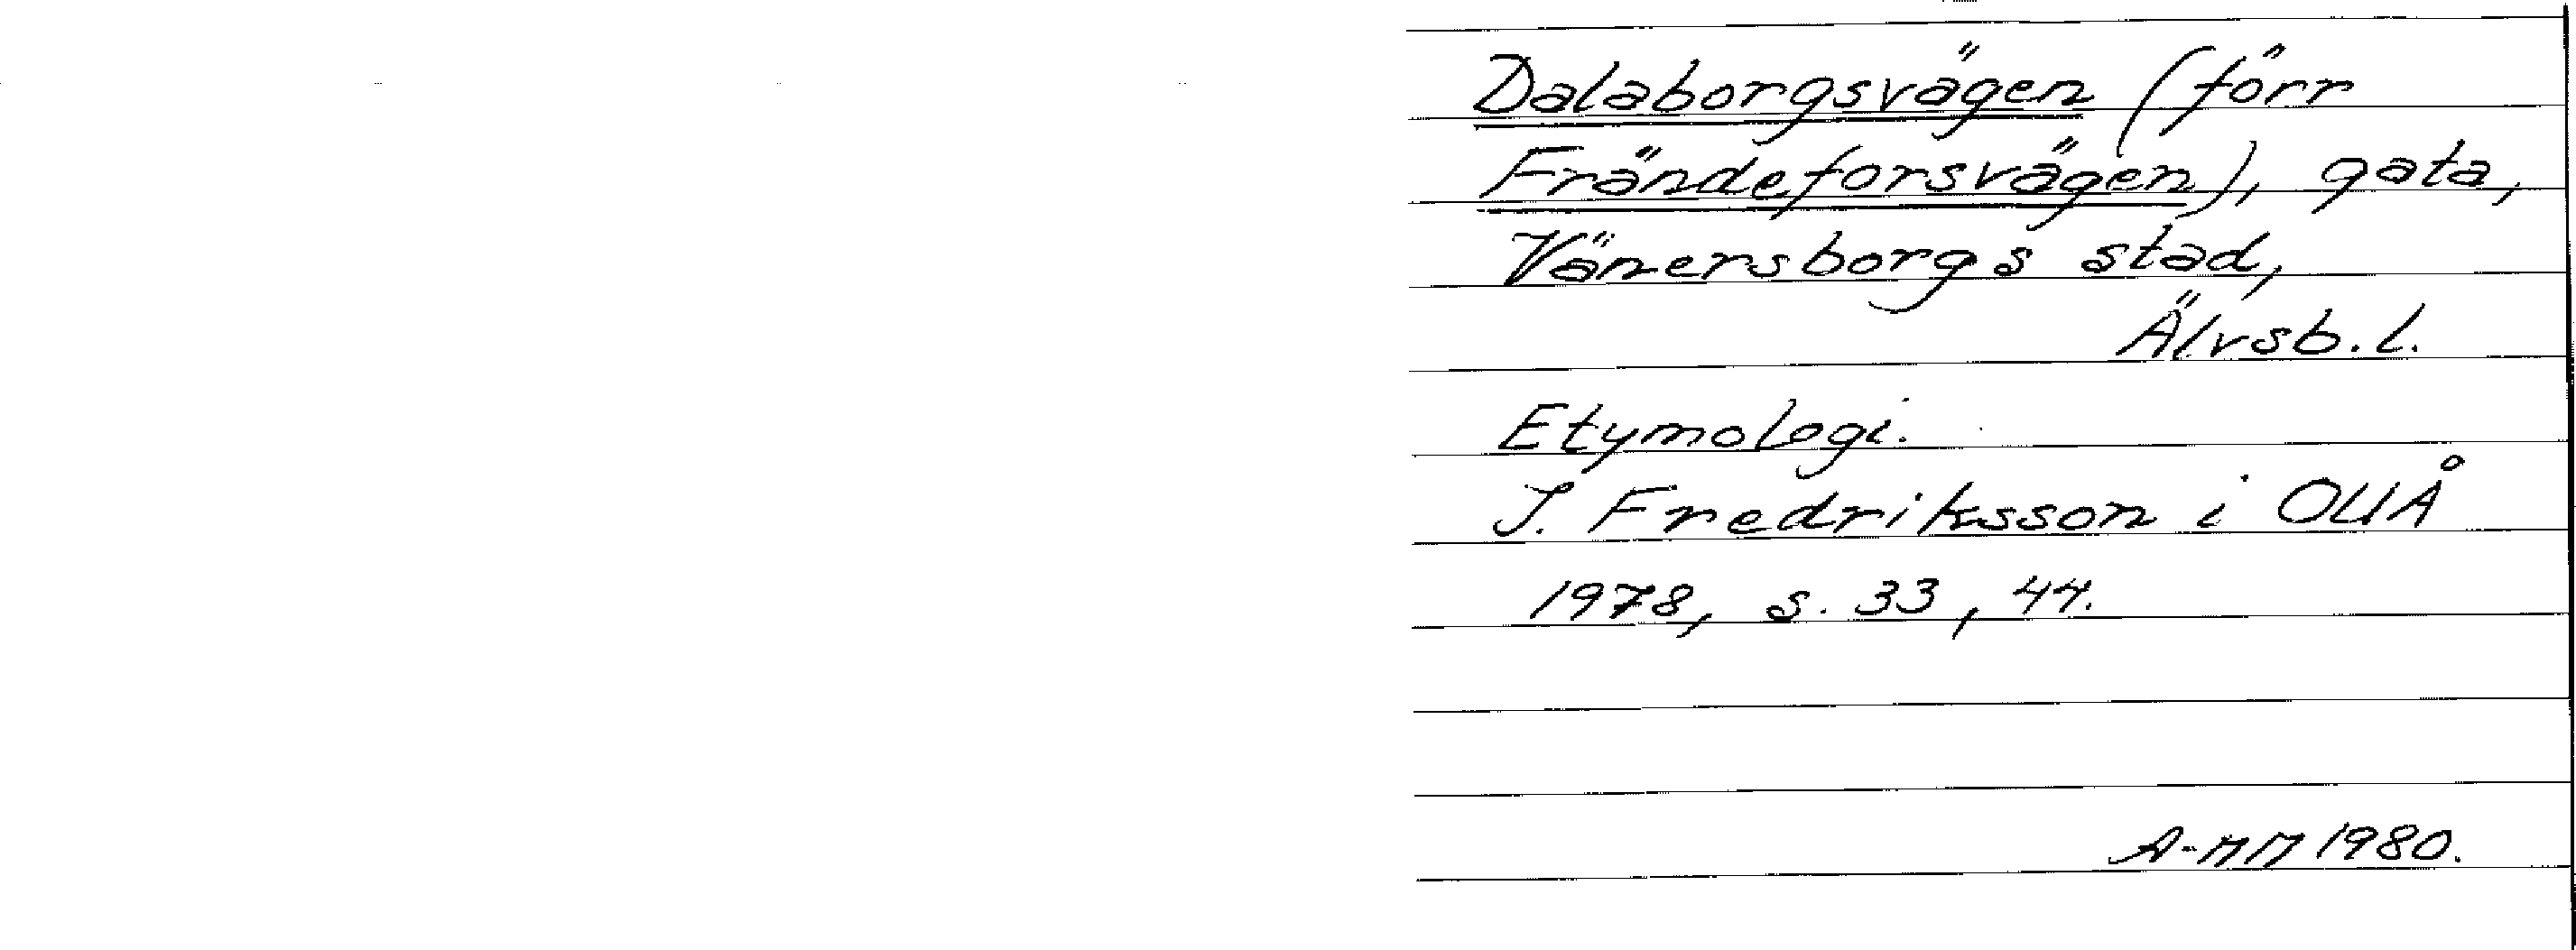 Dalaborgsvägen (förr
Frändeforsvägen), gata,
Vänersborgs stad,
Älvsb.l.
Etymologi.
J. Fredriksson i OUÅ
1978, s. 33, 44.
A-MM 1980.